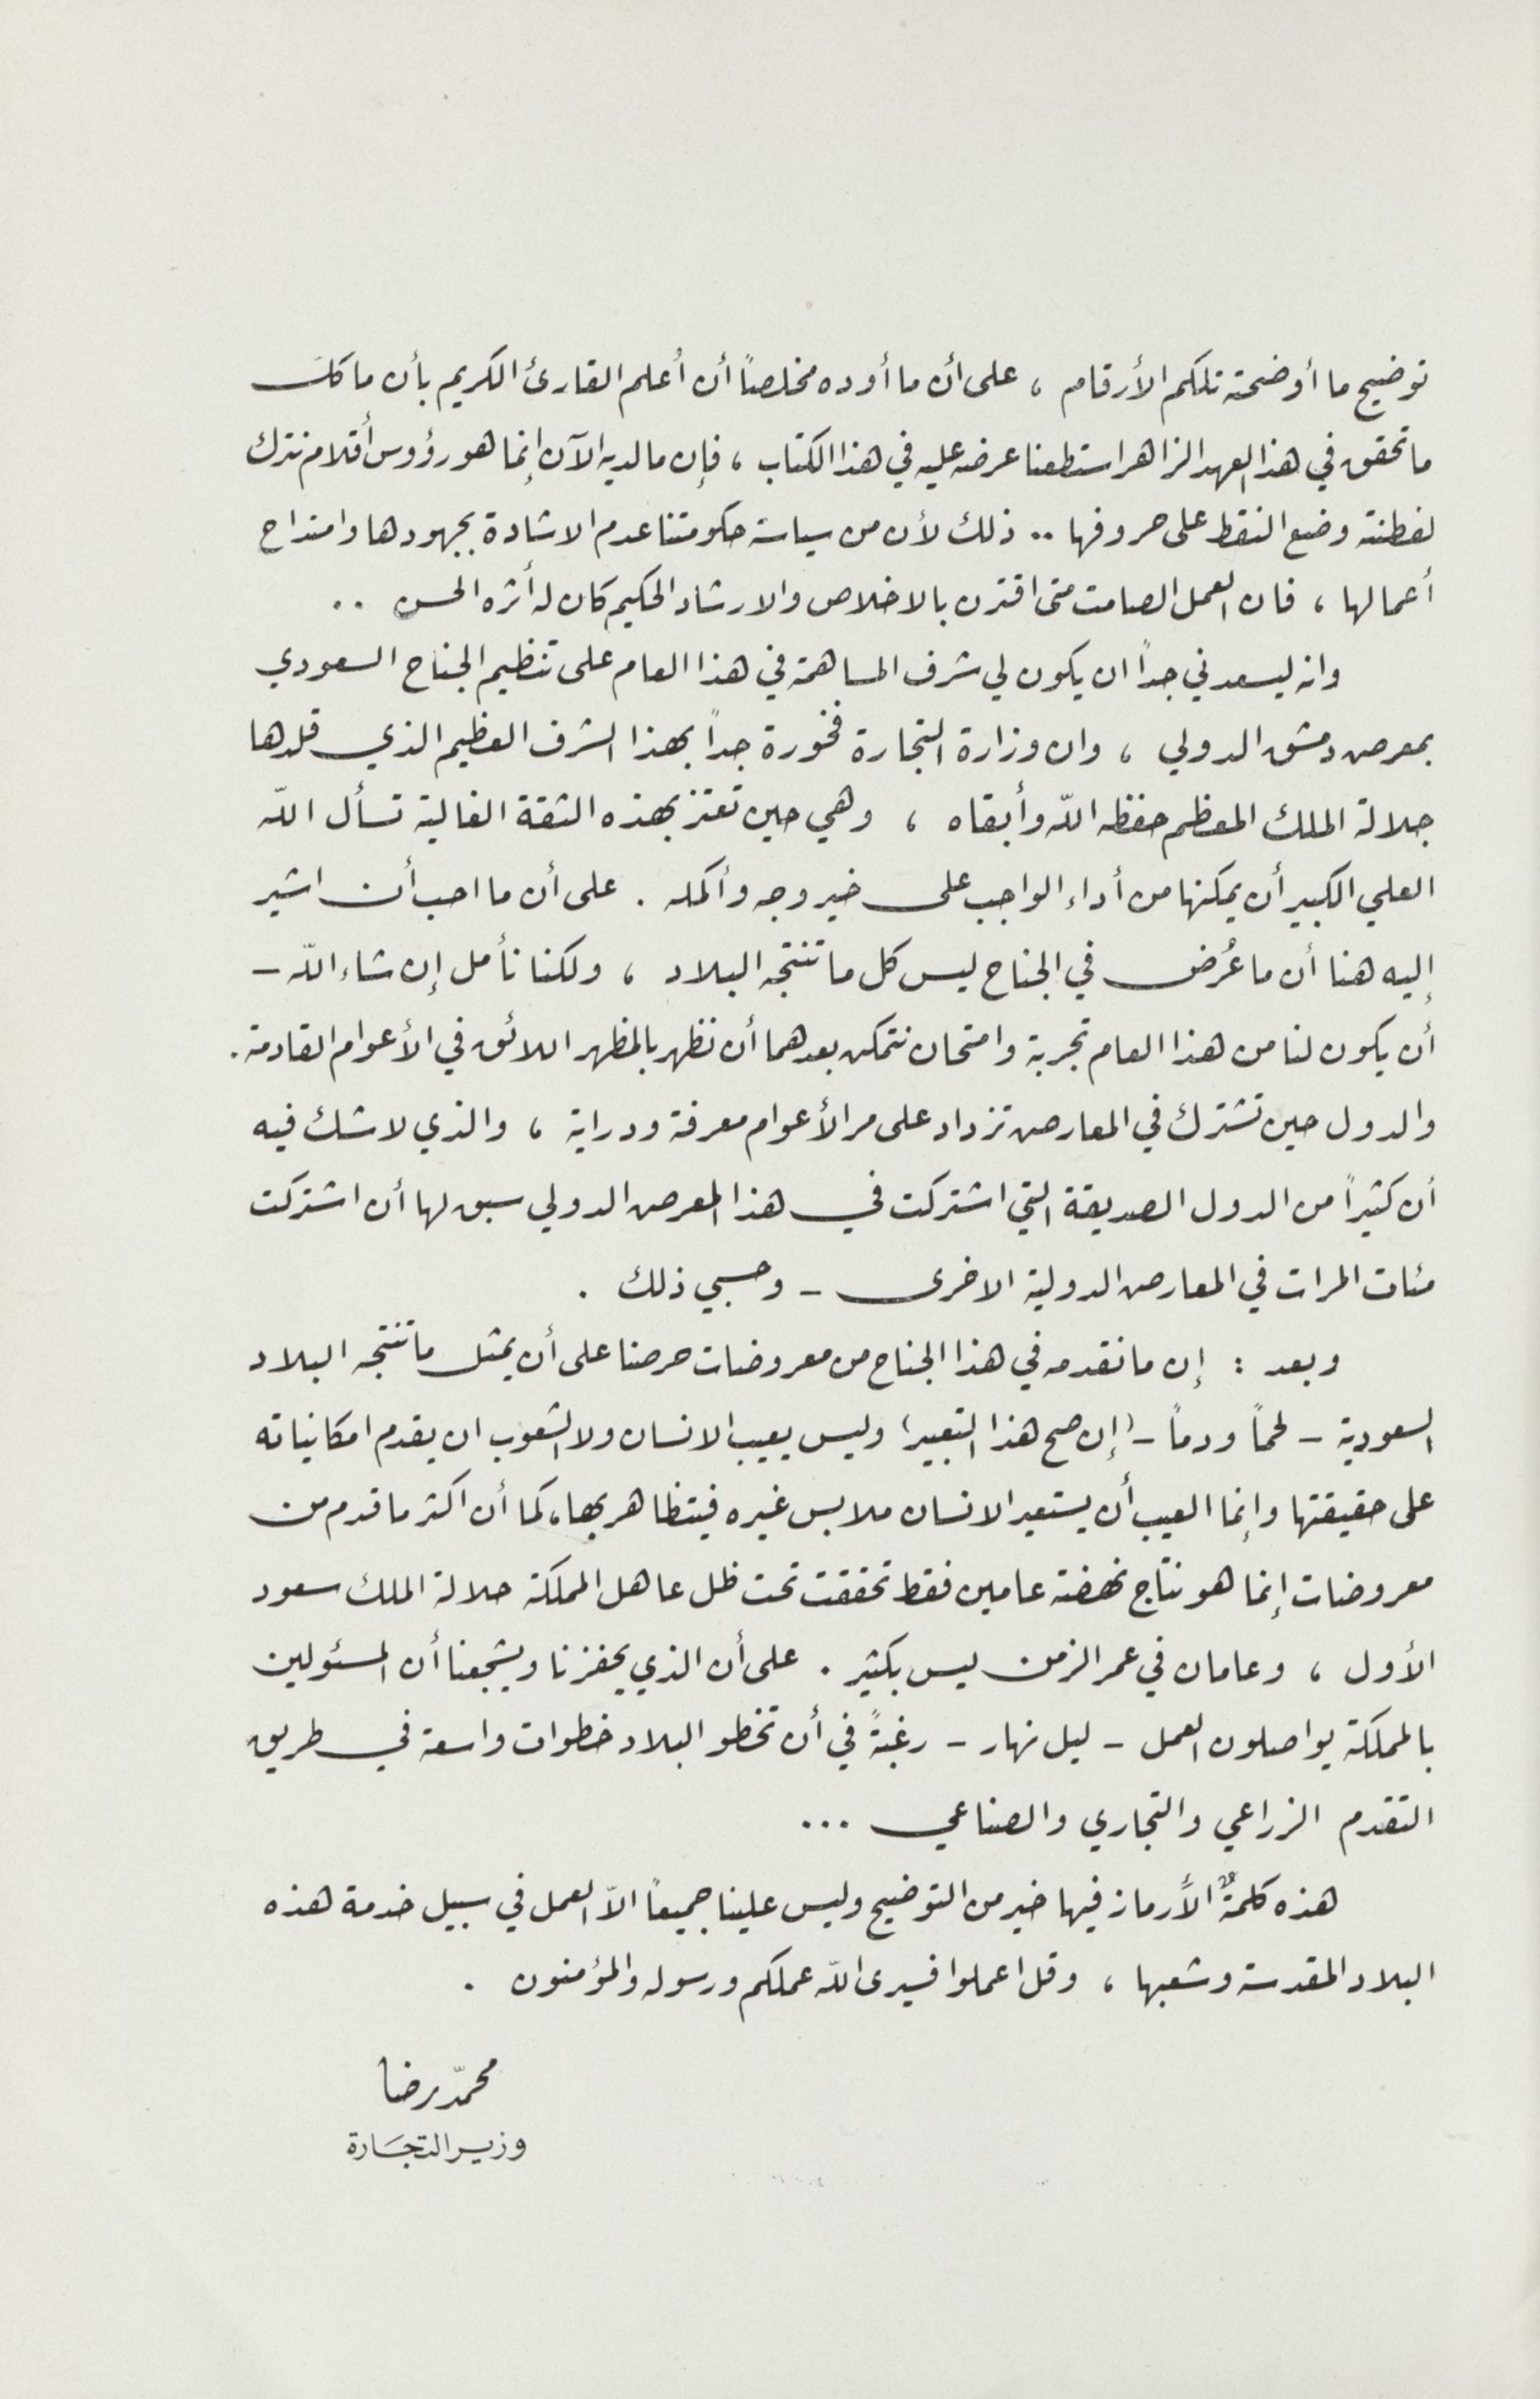 توضيح ما أوضحته تلكم الأرقام ، على أن ما أوده مخلصاً أن أُعلم القارئ الكريم بأن ما كلّ
ما تحقق في هذا العهد الزاهر استطعنا عرضه عليه في هذا الكتاب ، فإن ما لديه الآن إنما هو رؤوس أقلام نترك
لفطنته وضع النقط على حروفها .. ذلك لأن من سياسة حكومتنا عدم الاشادة بجهودها وامتداح
أعمالها ، فان العمل الصامت متى اقترن بالاخلاص والارشاد الحكيم كان له أثره الحسن ..
وانه ليسعدني جداً ان يكون لي شرف المساهمة في هذا العام على تنظيم الجناح السعودي
بمعرض دمشق الدولي ، وان وزارة التجارة فخورة جداً بهذا الشرف العظيم الذي قلدها
جلالة الملك المعظم حفظه الله وأبقاه ، وهي حين تعتز بهذه الثقة الغالية تسأل الله
العلي الكبير أن يمكنها من أداء الواجب على خير وجه وأكمله . على أن ما احب أن اشير
إليه هنا أن ما عُرض في الجناح ليس كل ما تنتجه البلاد ، ولكنا نأمل إن شاء الله –
أن يكون لنا من هذا العام تجربة وامتحان نتمكن بعدهما أن نظهر بالمظهر اللائق في الأعوام القادمة .
والدول حين تشترك في المعارض تزداد على مر الأعوام معرفة ودراية ، والذي لا شك فيه
أن كثيراً من الدول الصديقة التي اشتركت في هذا المعرض الدولي سبق لها أن اشتركت
مئات المرات في المعارض الدولية الاخرى – وحسبي ذلك .
وبعد : إن ما نقدمه في هذا الجناح من معروضات حرصنا على أن يمثل ما تنتجه البلاد
السعودية – لحماً ودماً – (إن صح هذا التعبير) وليس يعيب الانسان ولا الشعوب ان يقدم امكانياته
على حقيقتها وإنما العيب أن يستعير الانسان ملابس غيره فيتظاهر بها ، كما أن اكثر ما قدم من
معروضات إنما هو نتاج نهضة عامين فقط تحققت تحت ظل عاهل المملكة جلالة الملك سعود
الأول ، وعامان في عمر الزمن ليس بكثير . على أن الذي يحفزنا ويشجعنا أن المسئولين
بالمملكة يواصلون العمل – ليل نهار – رغبةً في أن تخطو البلاد خطوات واسعة في طريق
التقدم الزراعي والتجاري والصناعي ...
هذه كلمةٌ الأرماز فيها خير من التوضيح وليس علينا جميعاً الاّ العمل في سبيل خدمة هذه
البلاد المقدسة وشعبها ، وقل اعملوا فسيرى الله عملكم ورسوله والمؤمنون .
محمّد رضا
وزير التجَارة